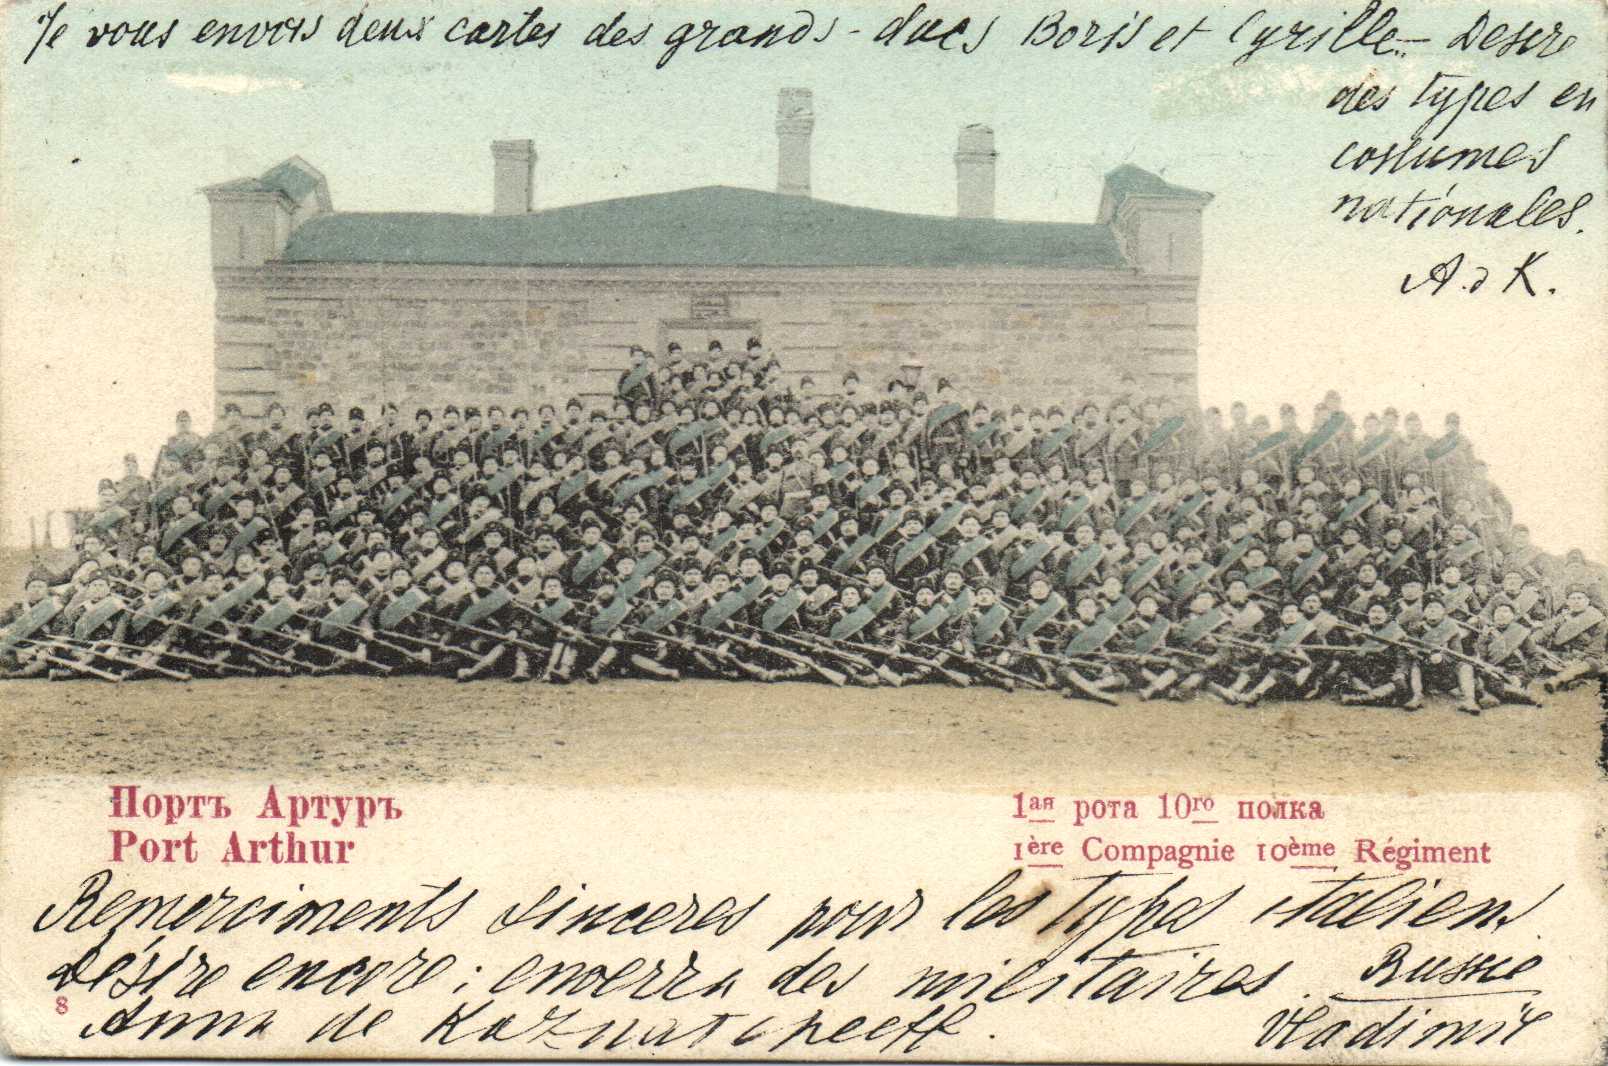 Je vous envois deux cartes des grands-ducs Boris et Cyrille — Desire
des types en
costumes
nationales.
A. d K.
Портъ Артуръ
Port Arthur
1ая рота 10го полка
1ère Compagnie 10ème Régiment
Remerciments sinceres pour les types italiens.
Désire encore; enverra des militaires. Russie
8
Anna de Kaznatcheeff. Vladimir